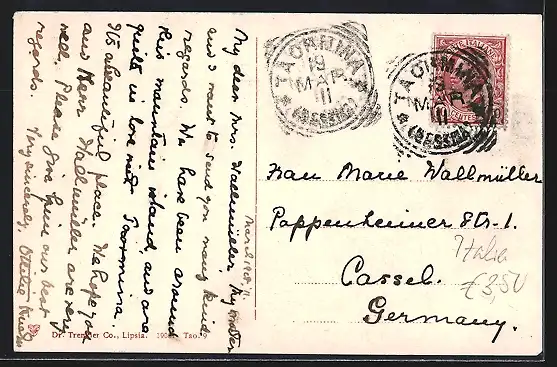 March 19th, 11.
My dear Mrs. Wallmüller, My mother
and I want to send you many kind
regards. We have been around
this mountains island, and are
quite in love with Taormina.
Its a beautiful place. We hope you
and Herr Wallmüller are very
well. Please give him our best
regards. Very sincerely, Ottilie
TAORMINA
19
MAR
11
(MESSINA)
TAORMINA
19
MAR
11
(MESSINA)
Frau Marie Wallmüller
Pappenheimer Str. 1.
Cassel.
Germany.
Italia
€3,50
Dr. Trenkler Co., Lipsia. Tao. 9